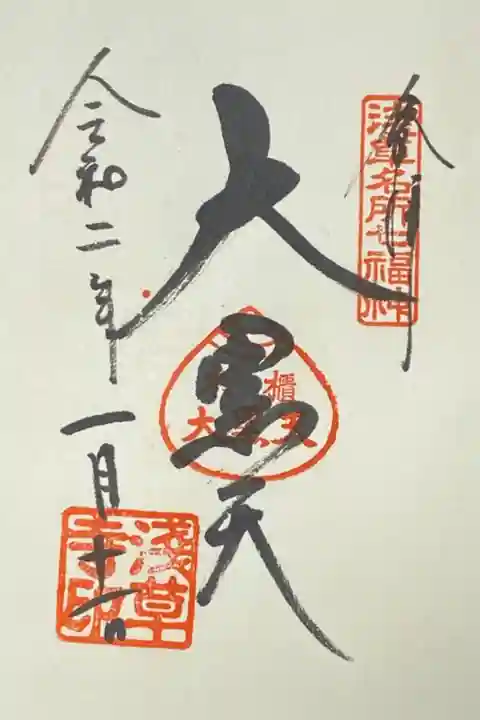 奉拝
浅草名所七福神
大黒天
令和二年一月十一日
浅草寺印